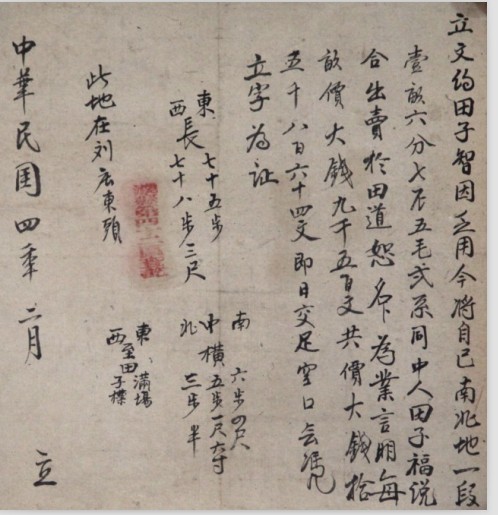 立文约田子智因乏用今将自己南北地一段
壹畝六分七厘五毛弍系同中人田子福说
合出賣於田道恕名下為業言明每
畝價大钱九千五百文共價大錢拾
五千八百六十四文即日交足空口無凭
立字為证
東 七十五步
長
西 七十八步三尺
南 六步四尺
中横五步一尺六寸
北 三步半
此地在刘庄東頭
東、满場
西至田子標
中華民国四年二月 立